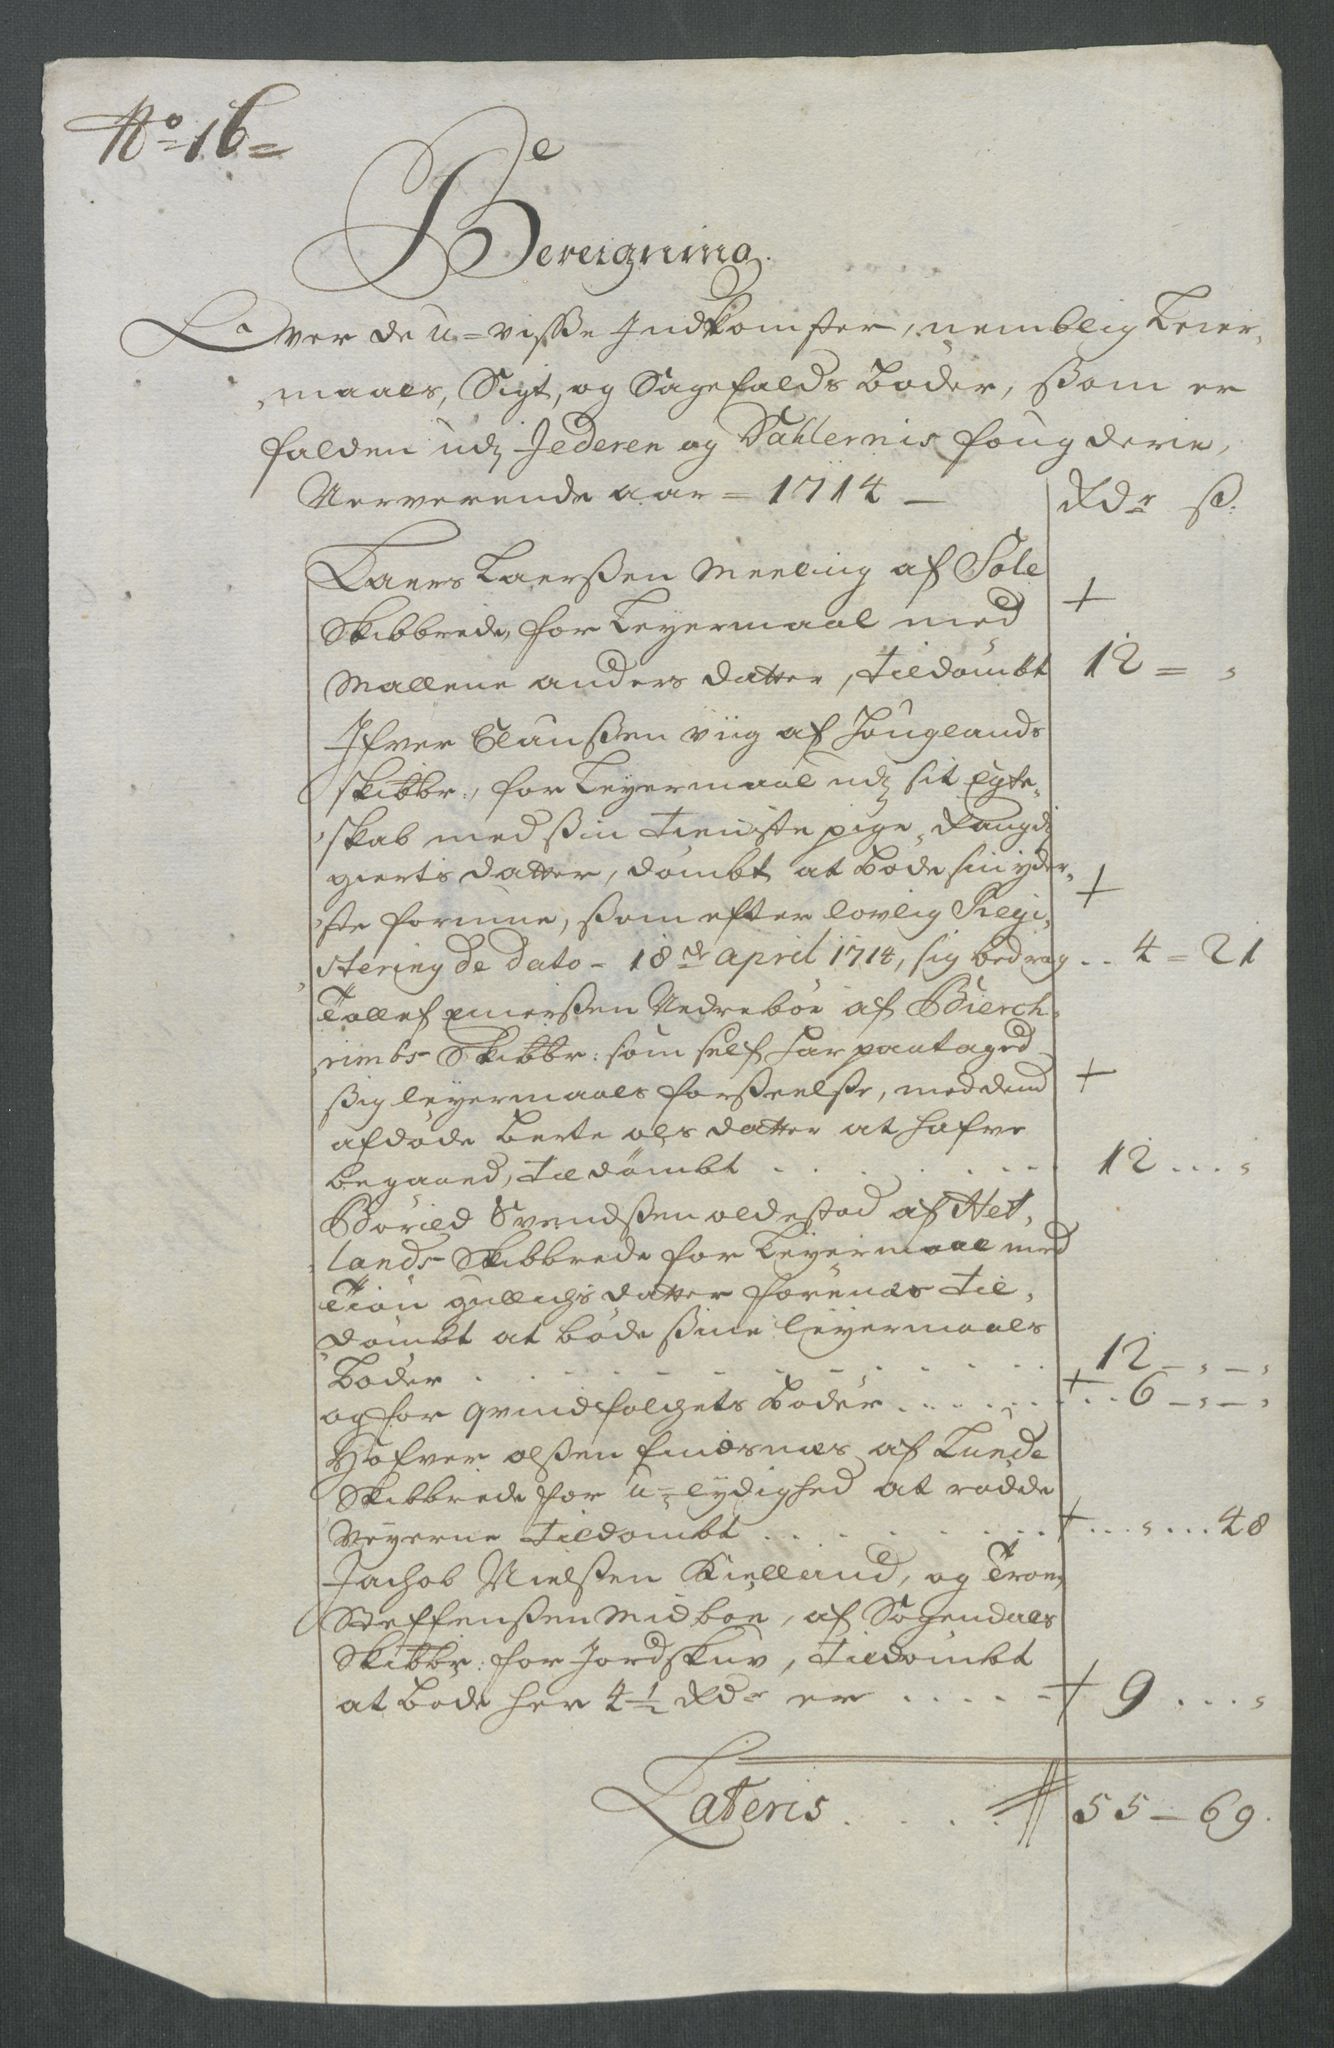 No 16=
Bereigning.
Over de u=visse Indkomster, nemblig Leier,,
,,maals, Sigt, og Sagefalds bøder, ssom er
falden udj Jederen og Dahlernis fougderie,
Nerverende aar = 1714 — Rdr ß.
Laers Laerssen Meeling af Sole
Skibbrede, for Leyermaal med +
Mallene anders datter, tildømbt 12 = ,
Ifver Claussen viig af Houglands
skibbr:, for Leyermaal udj sit Egte,,
,,skab med ssin tieniste pige,
gierts datter, dømbt at bøde sin yder,, +
,,ste formue, ssom efter lovlig Regi,,
,,stering de dato - 18de april 1714, sig bedrag .. 4 = 21
Tollef Einerssen Nedrebøe af Bierch,,
,,rimbs Skibbr: som self har paataged
ssig leyermaals forsseelsse, med dend +
afdøde berte ols datter at hafve
begaaed, tildømbt . . . . 12 .... ,
Børild Svendssen oldestad af Het,,
,,lands Skibbrede for Leyermaal med
datter til,,
,,dømbt at bøde ssine leyermaals
bøder . . . . 12 — , — ,
og for qvindfolchets bøder . . . . + .. 6 — , — ,
olssen af Lunde
Skibbrede for u=lydighed at rødde
Veyerne tildømbt . . . . + ... , ... 48
Jachob Nielssen Kielland, og Tron
Steffenssen Midbøe, af Sogendals
Skibbr: for Jordskuv, tildømbt
at bøde hver 4 1/2 Rdr er . . . . + 9 .... ,
Lateris . . . . 55 — 69.